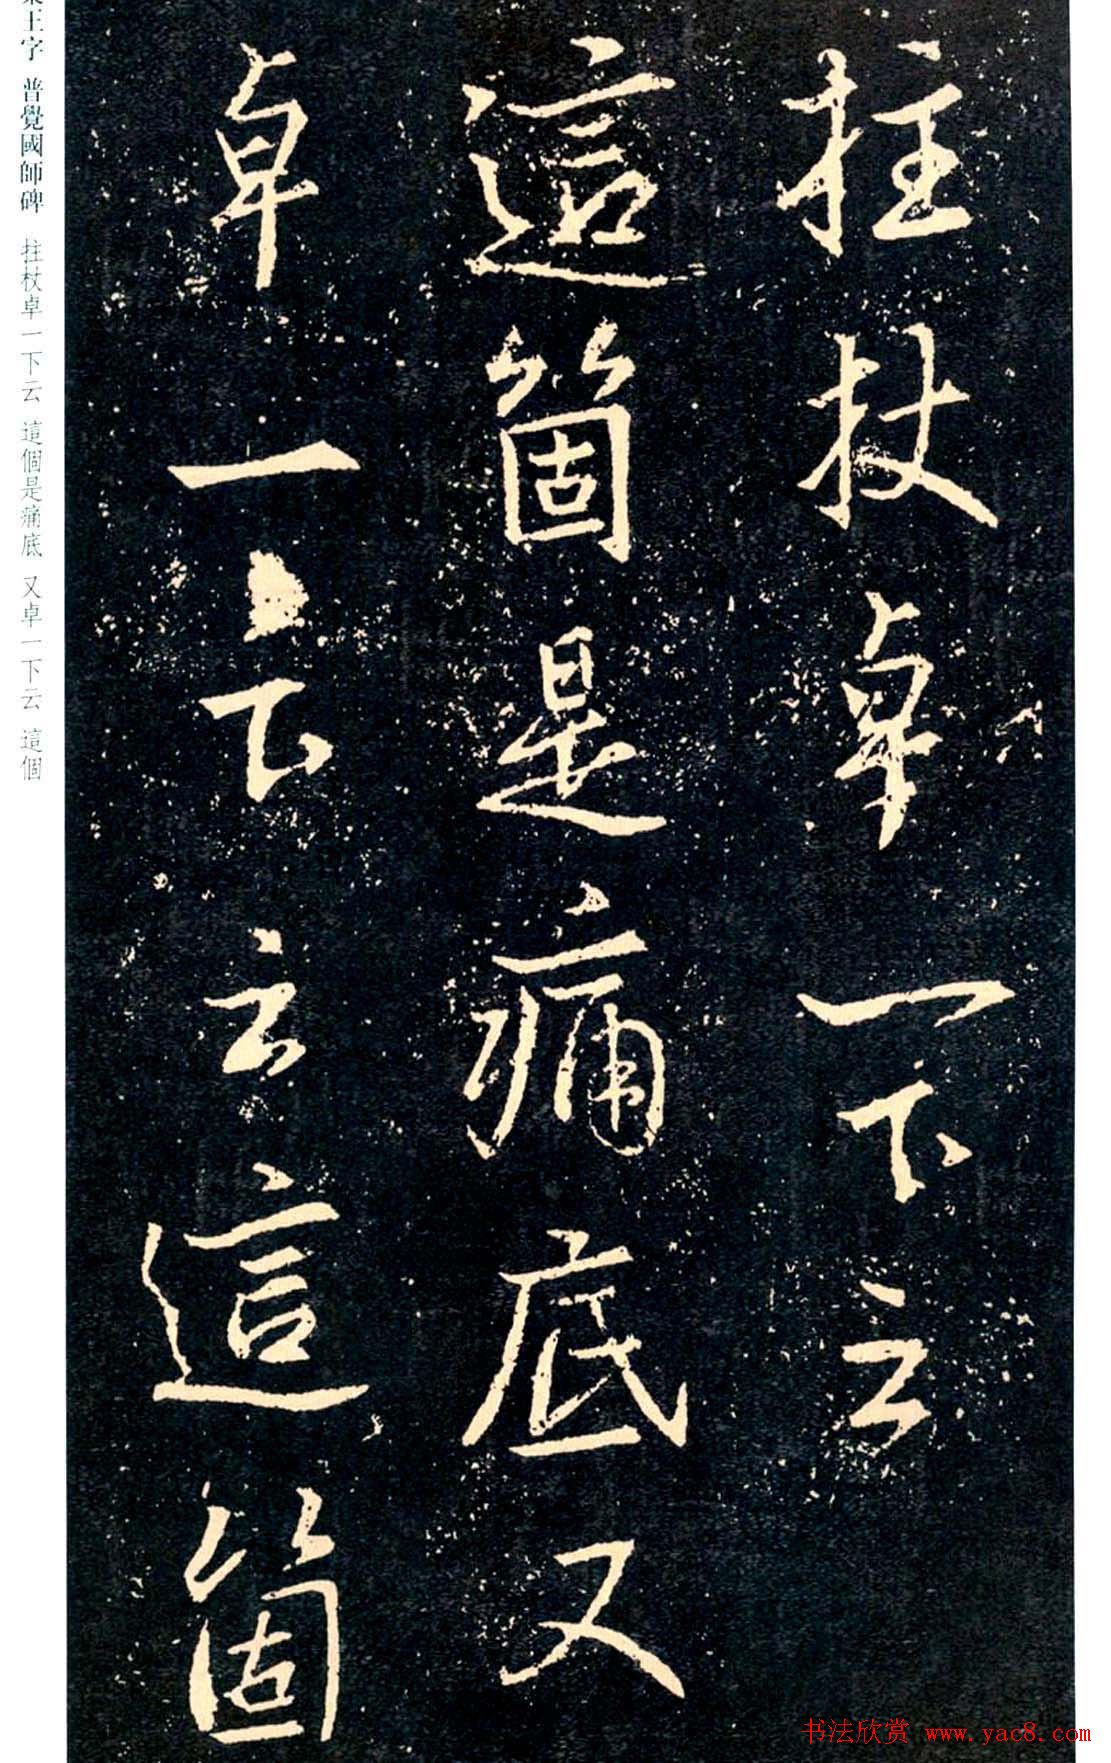 拄杖卓一下云
這箇是痛底又
卓一下云這箇
王字 普覺國師碑 拄杖卓一下云 這個是痛底 又卓一下云 這個
书法欣赏 www.yac8.com